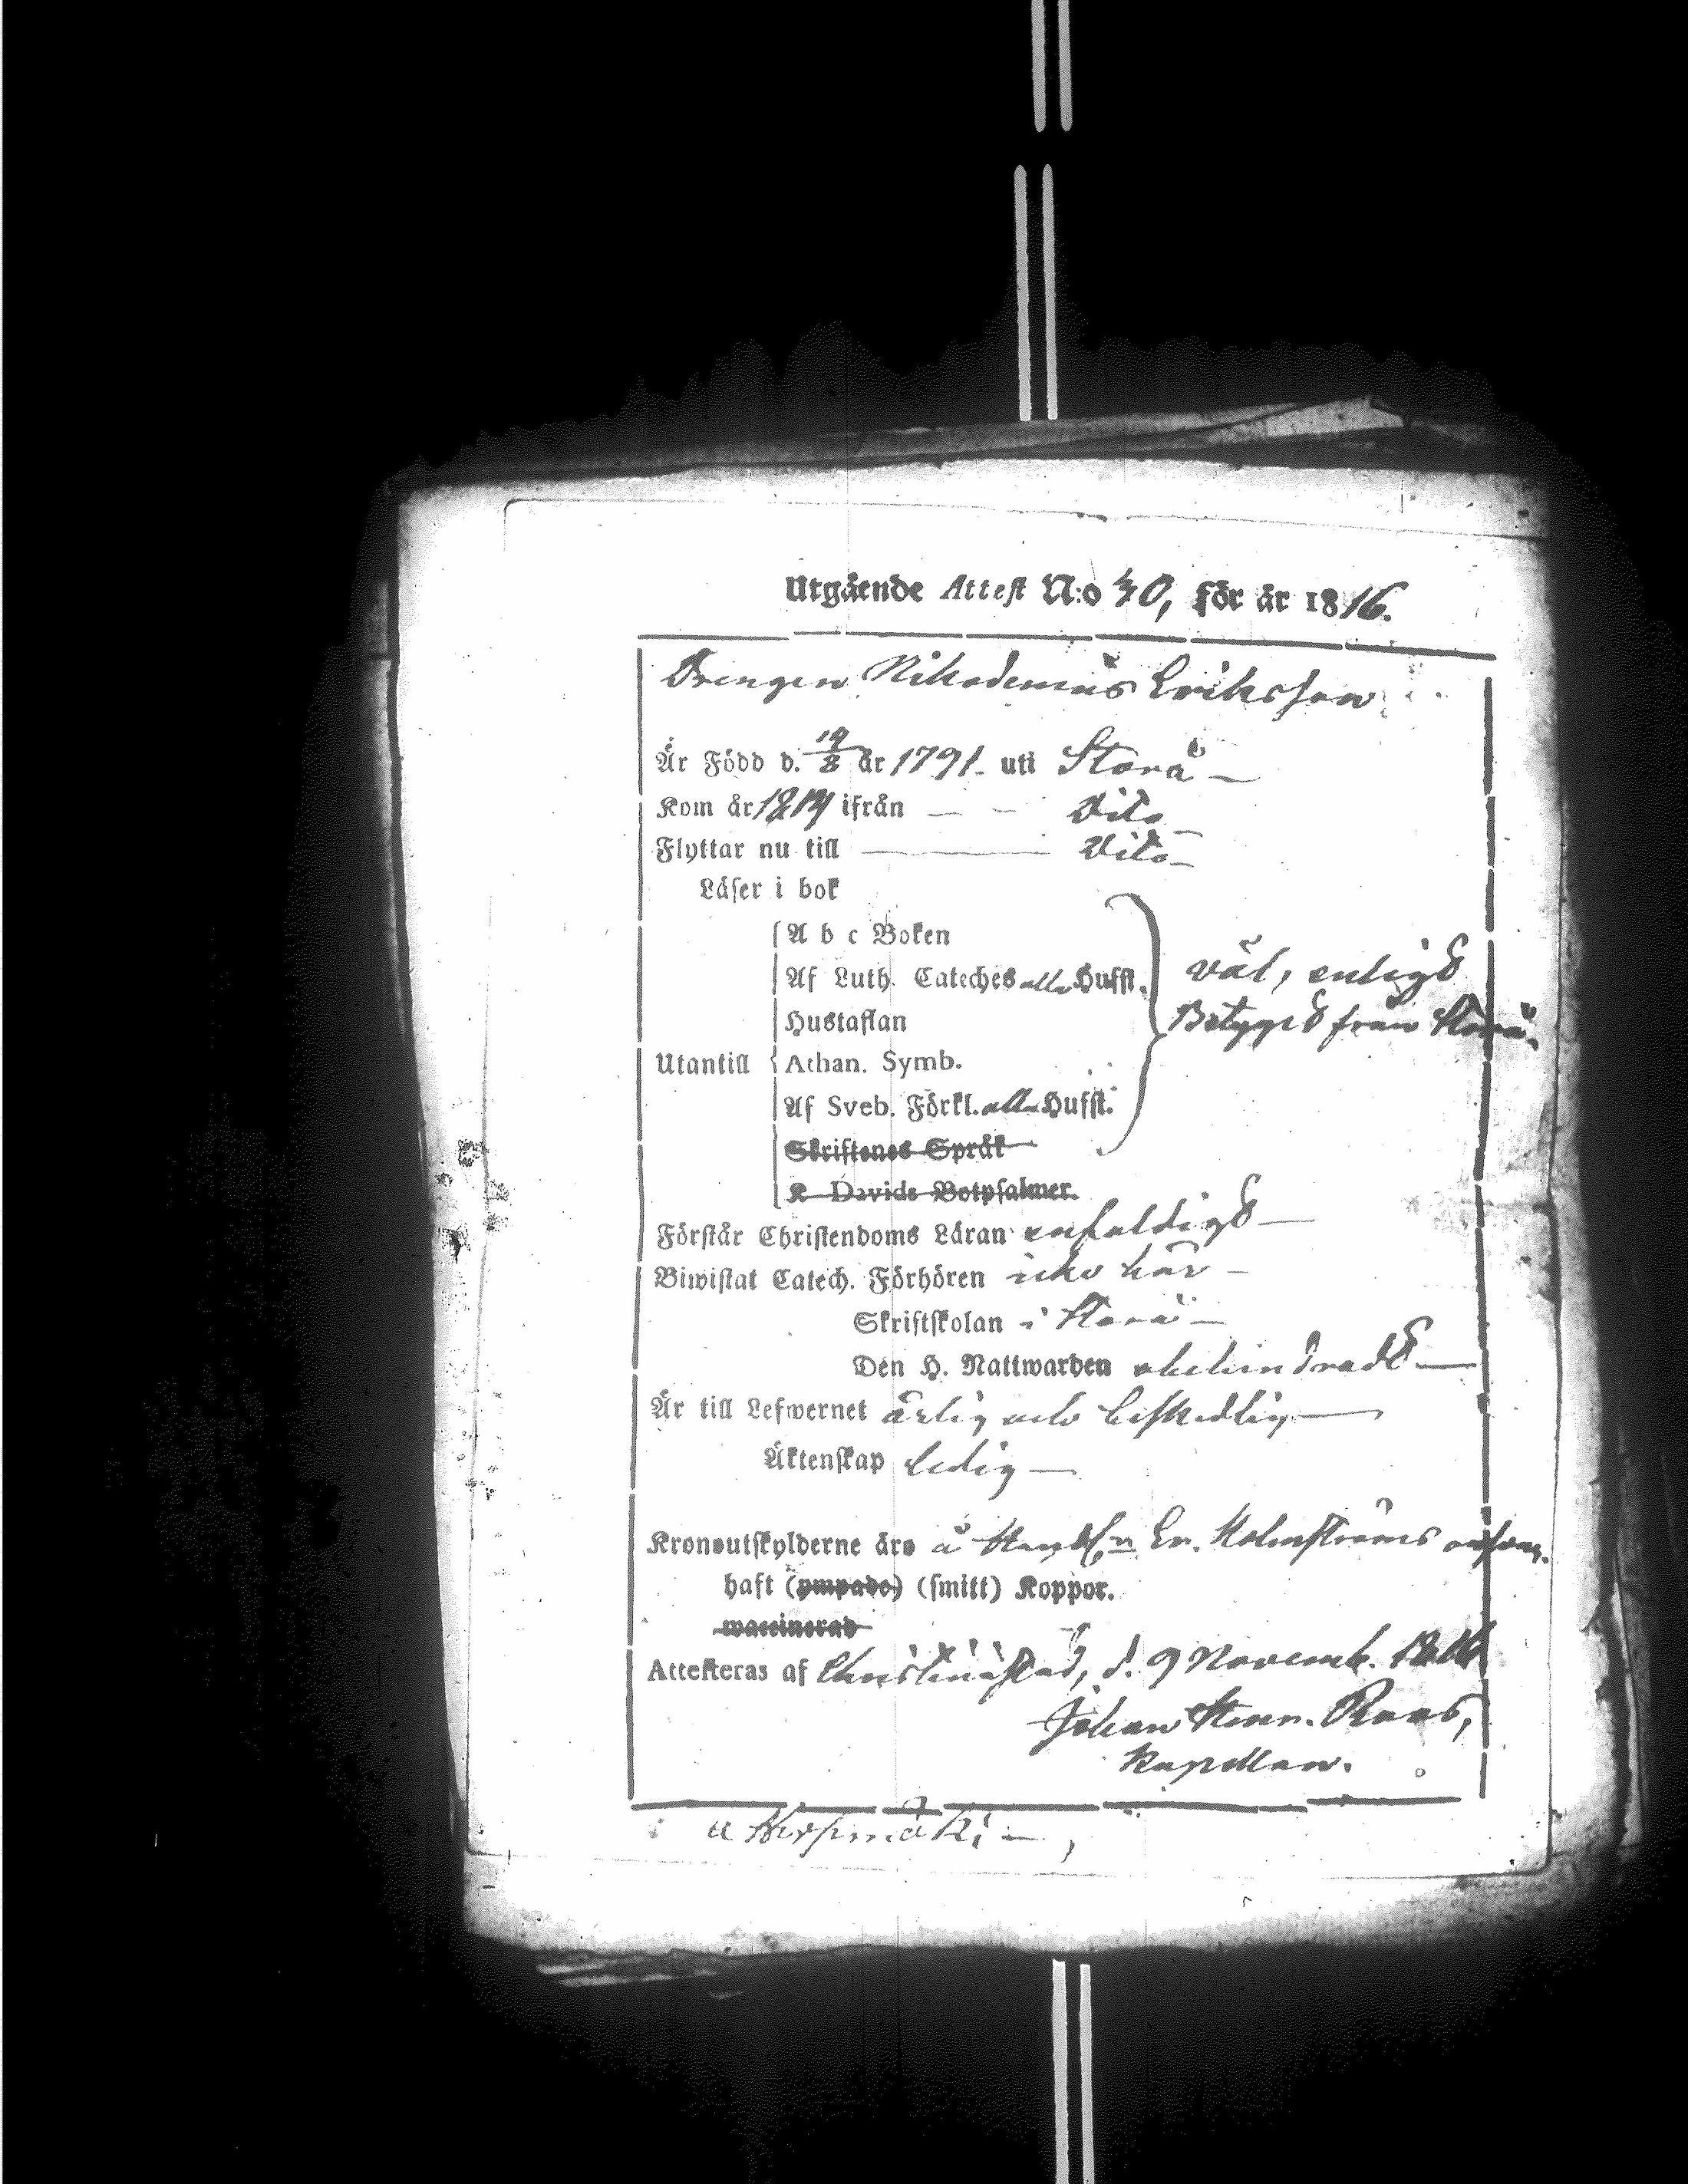 Utgående Attest N:o 40, för år 1816.
Drengen Nikodemus Eriksson
Är Född d. 19/8 år 1791. uti Storå —
Kom år 1814 ifrån — — Dito
Flyttar nu till — Dito —
Läser i bok
A b c Boken
Af Luth. Cateches alla Hufst. väl, enligt
Hustaflan Betyget från Storå.
Utantill Athan. Symb.
Af Sveb. Förkl. alla Hufst.
Skriftenes Språk
K Davids Botpsalmer.
Förstår Christendoms Läran enfaldigt —
Biwistat Catech. Förhören icke här —
Skriftskolan i Storå —
Den H. Nattwarden obehindradt —
Är till Lefwernet ärlig och beskedlig —
Äktenskap ledig —
Kronoutskylderne äro å Handl:n Er. Holmströms ansvar.
haft (ympade) (smitt) Koppor.
waccinerad
Attesteras af Christinæstad, d. 9 Novemb. 1816
Johan Roos,
Kapellan.